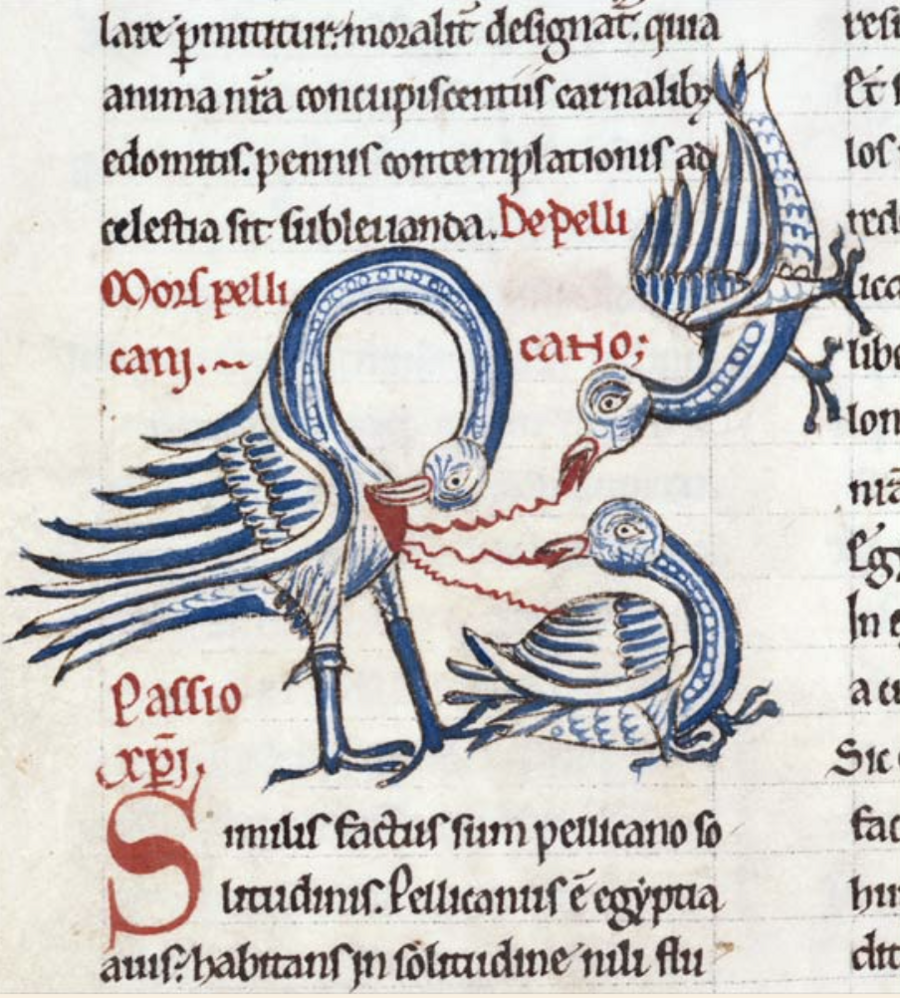 lare p̱mittitur: moralit̄ designat̄. quia
anima nr̄a concupiscentiis carnalibꝫ
edomitis. pennis contemplationis ad
celestia sit subleuanda. De pelli
Mors pelli
canj. ~
cano;
Passio
xp̄i.
Similis factus sum pellicano so
litudinis. Pellicanus ē egẏptia
auis: habitans in solitudine nili flu